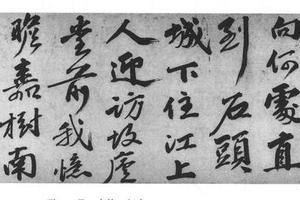 向何處直
到石頭
城下住江上
人迎訪故廬
堂前我憶
瞻嘉樹南